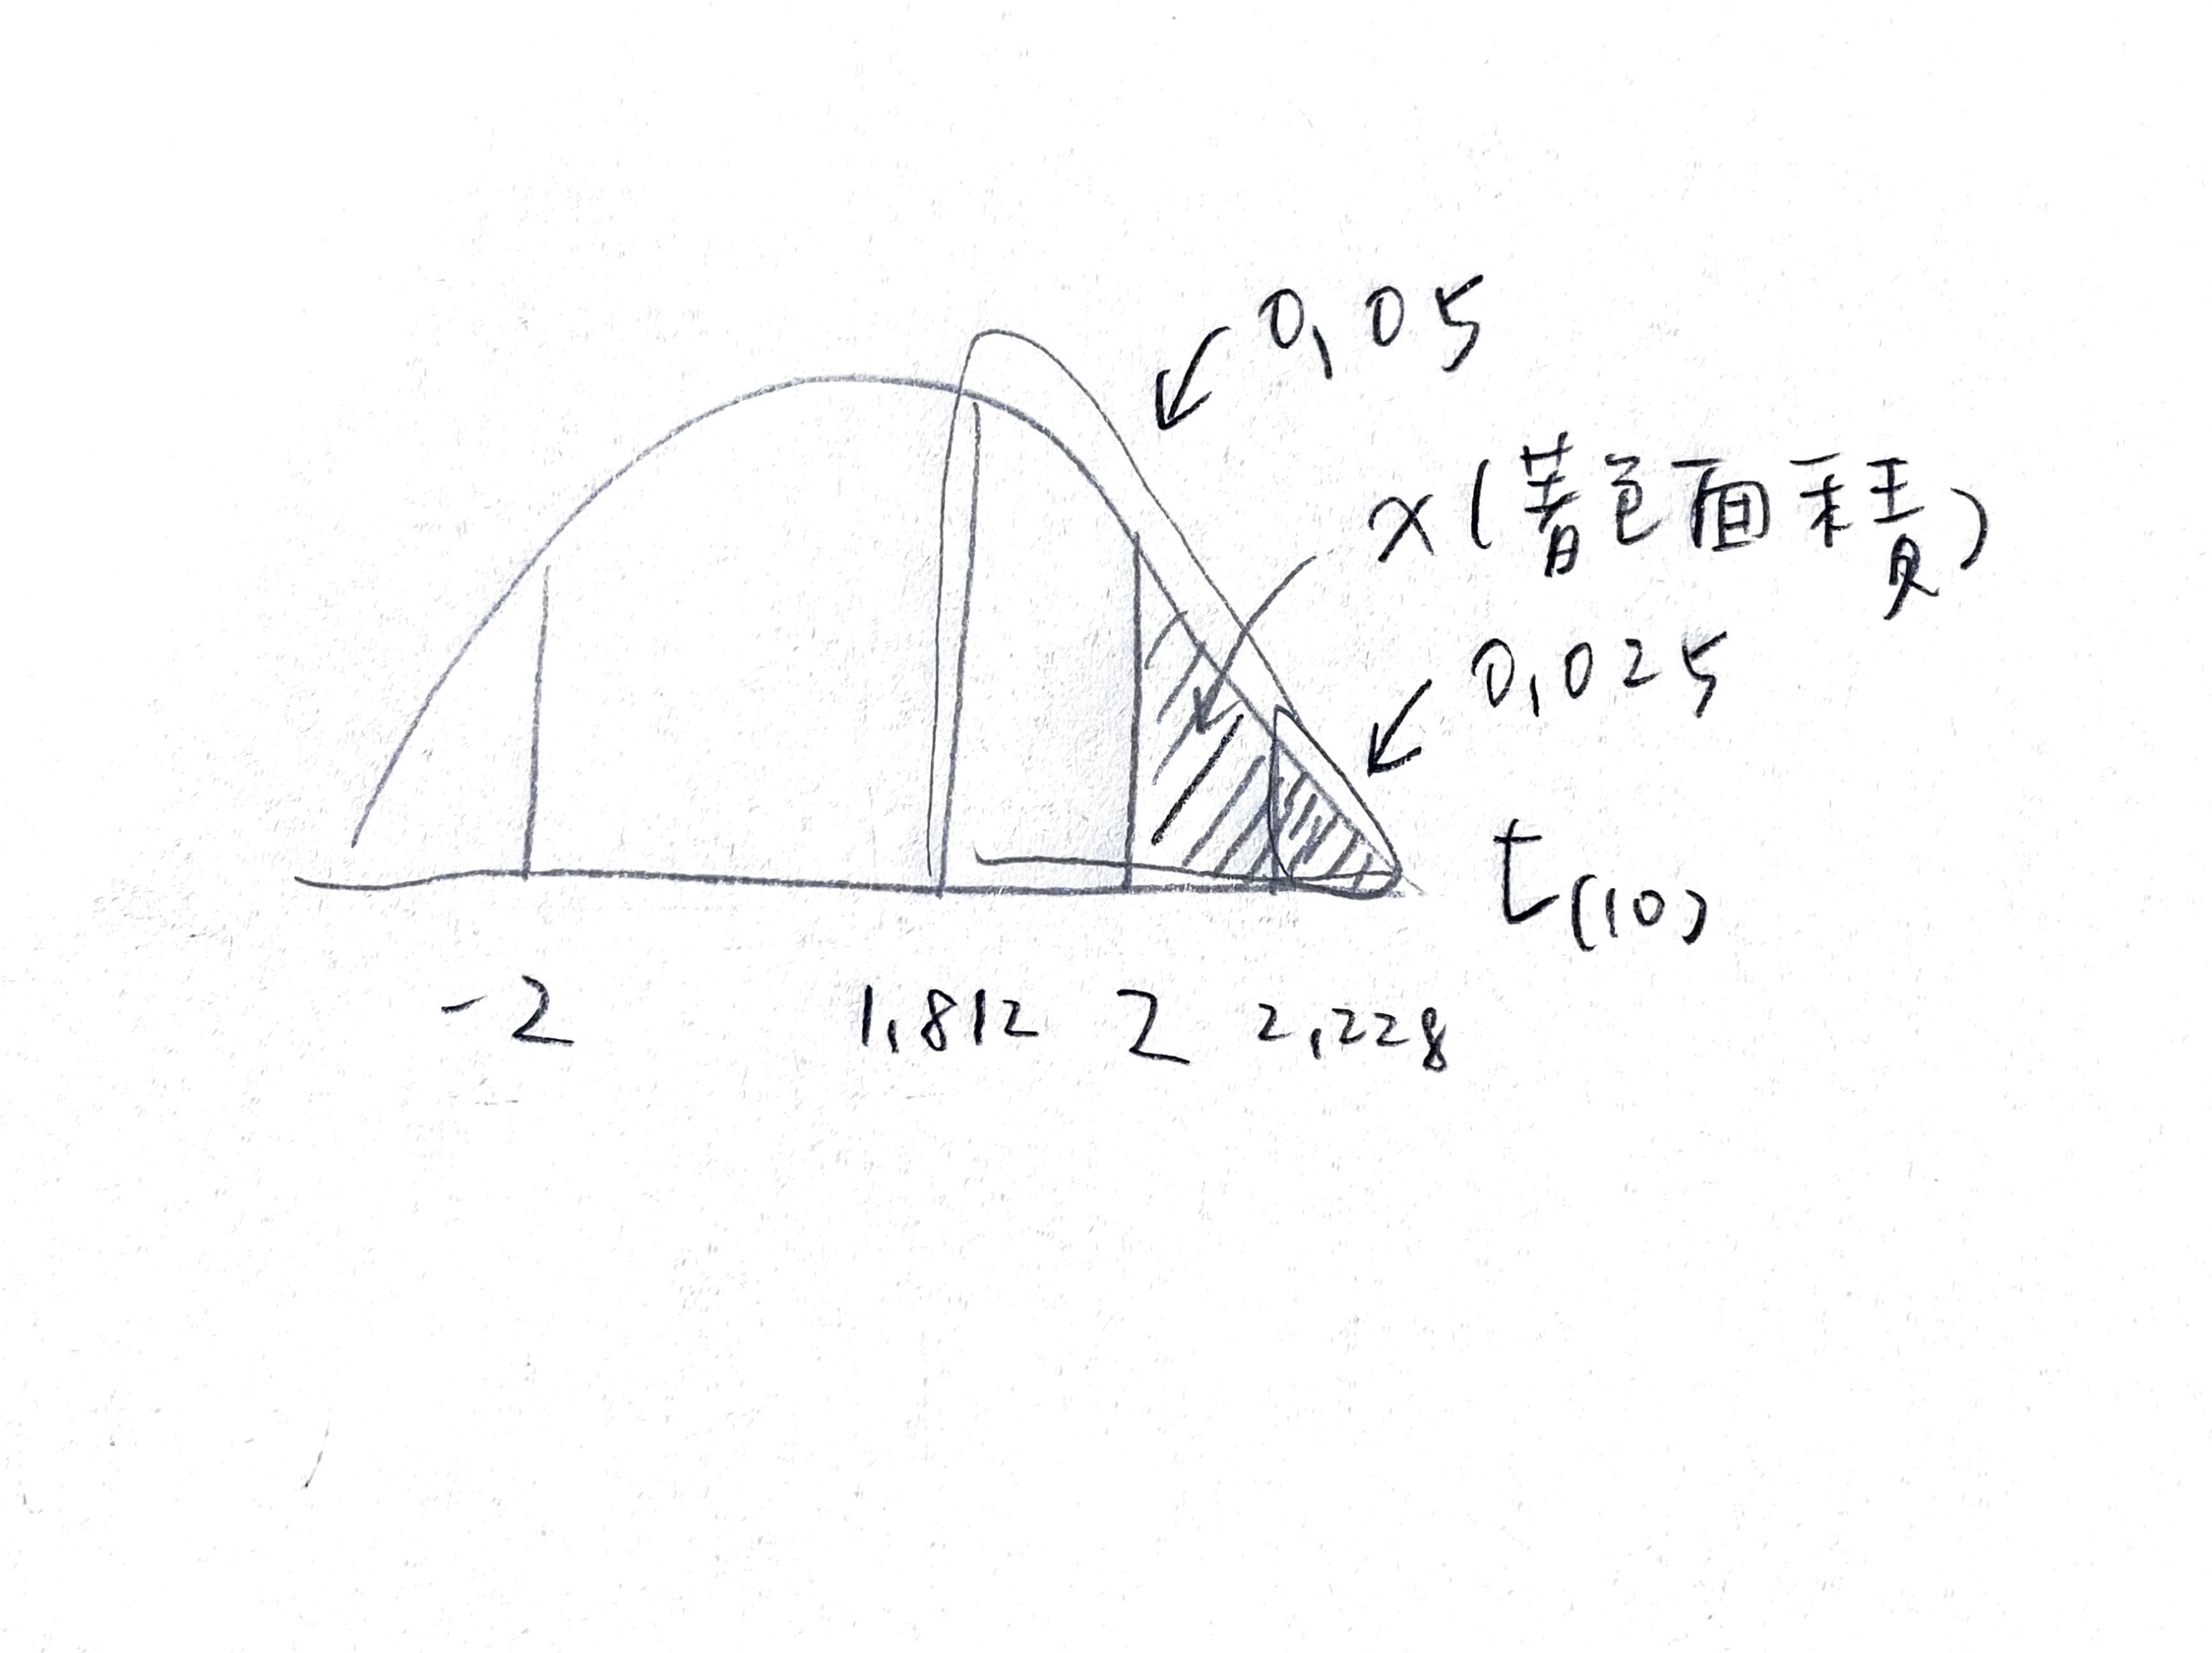 0,05
x(著色面積)
0,025
t(10)
-2 1,812 2 2,228